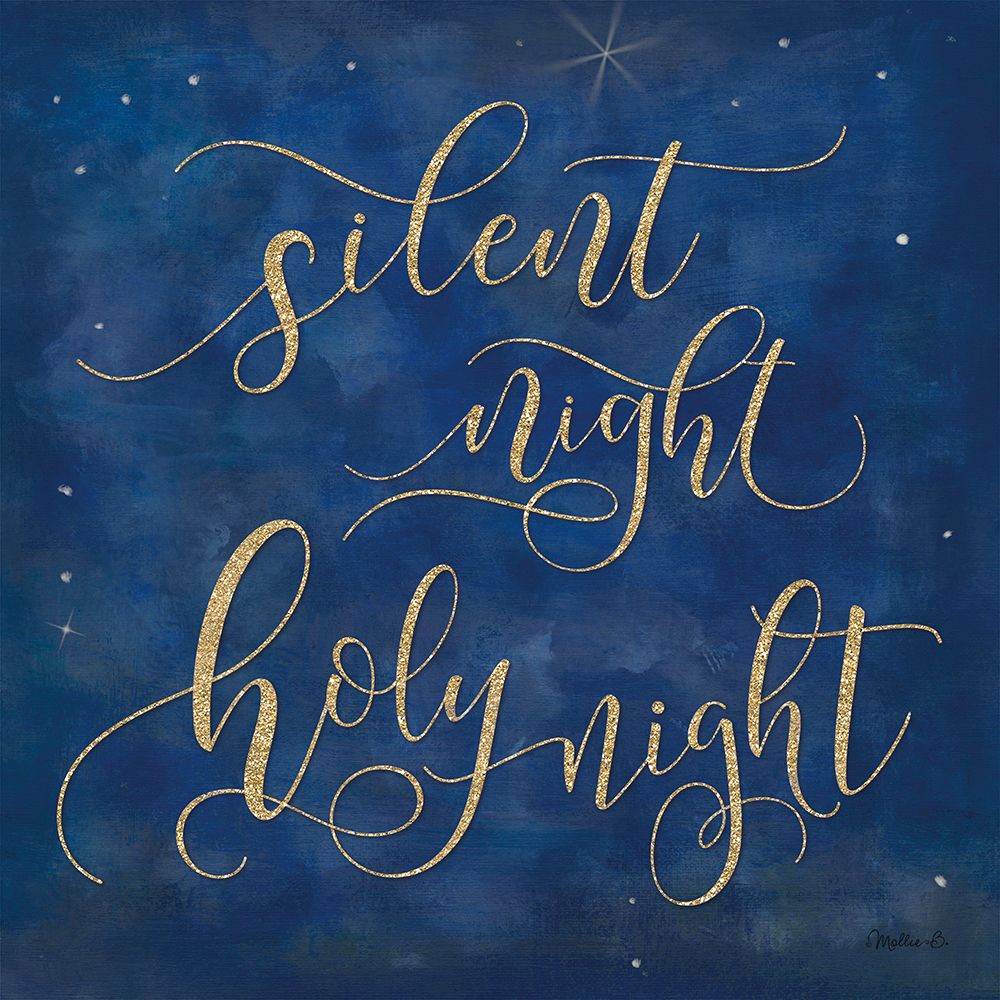 silent
night
holy night
Mollie B.